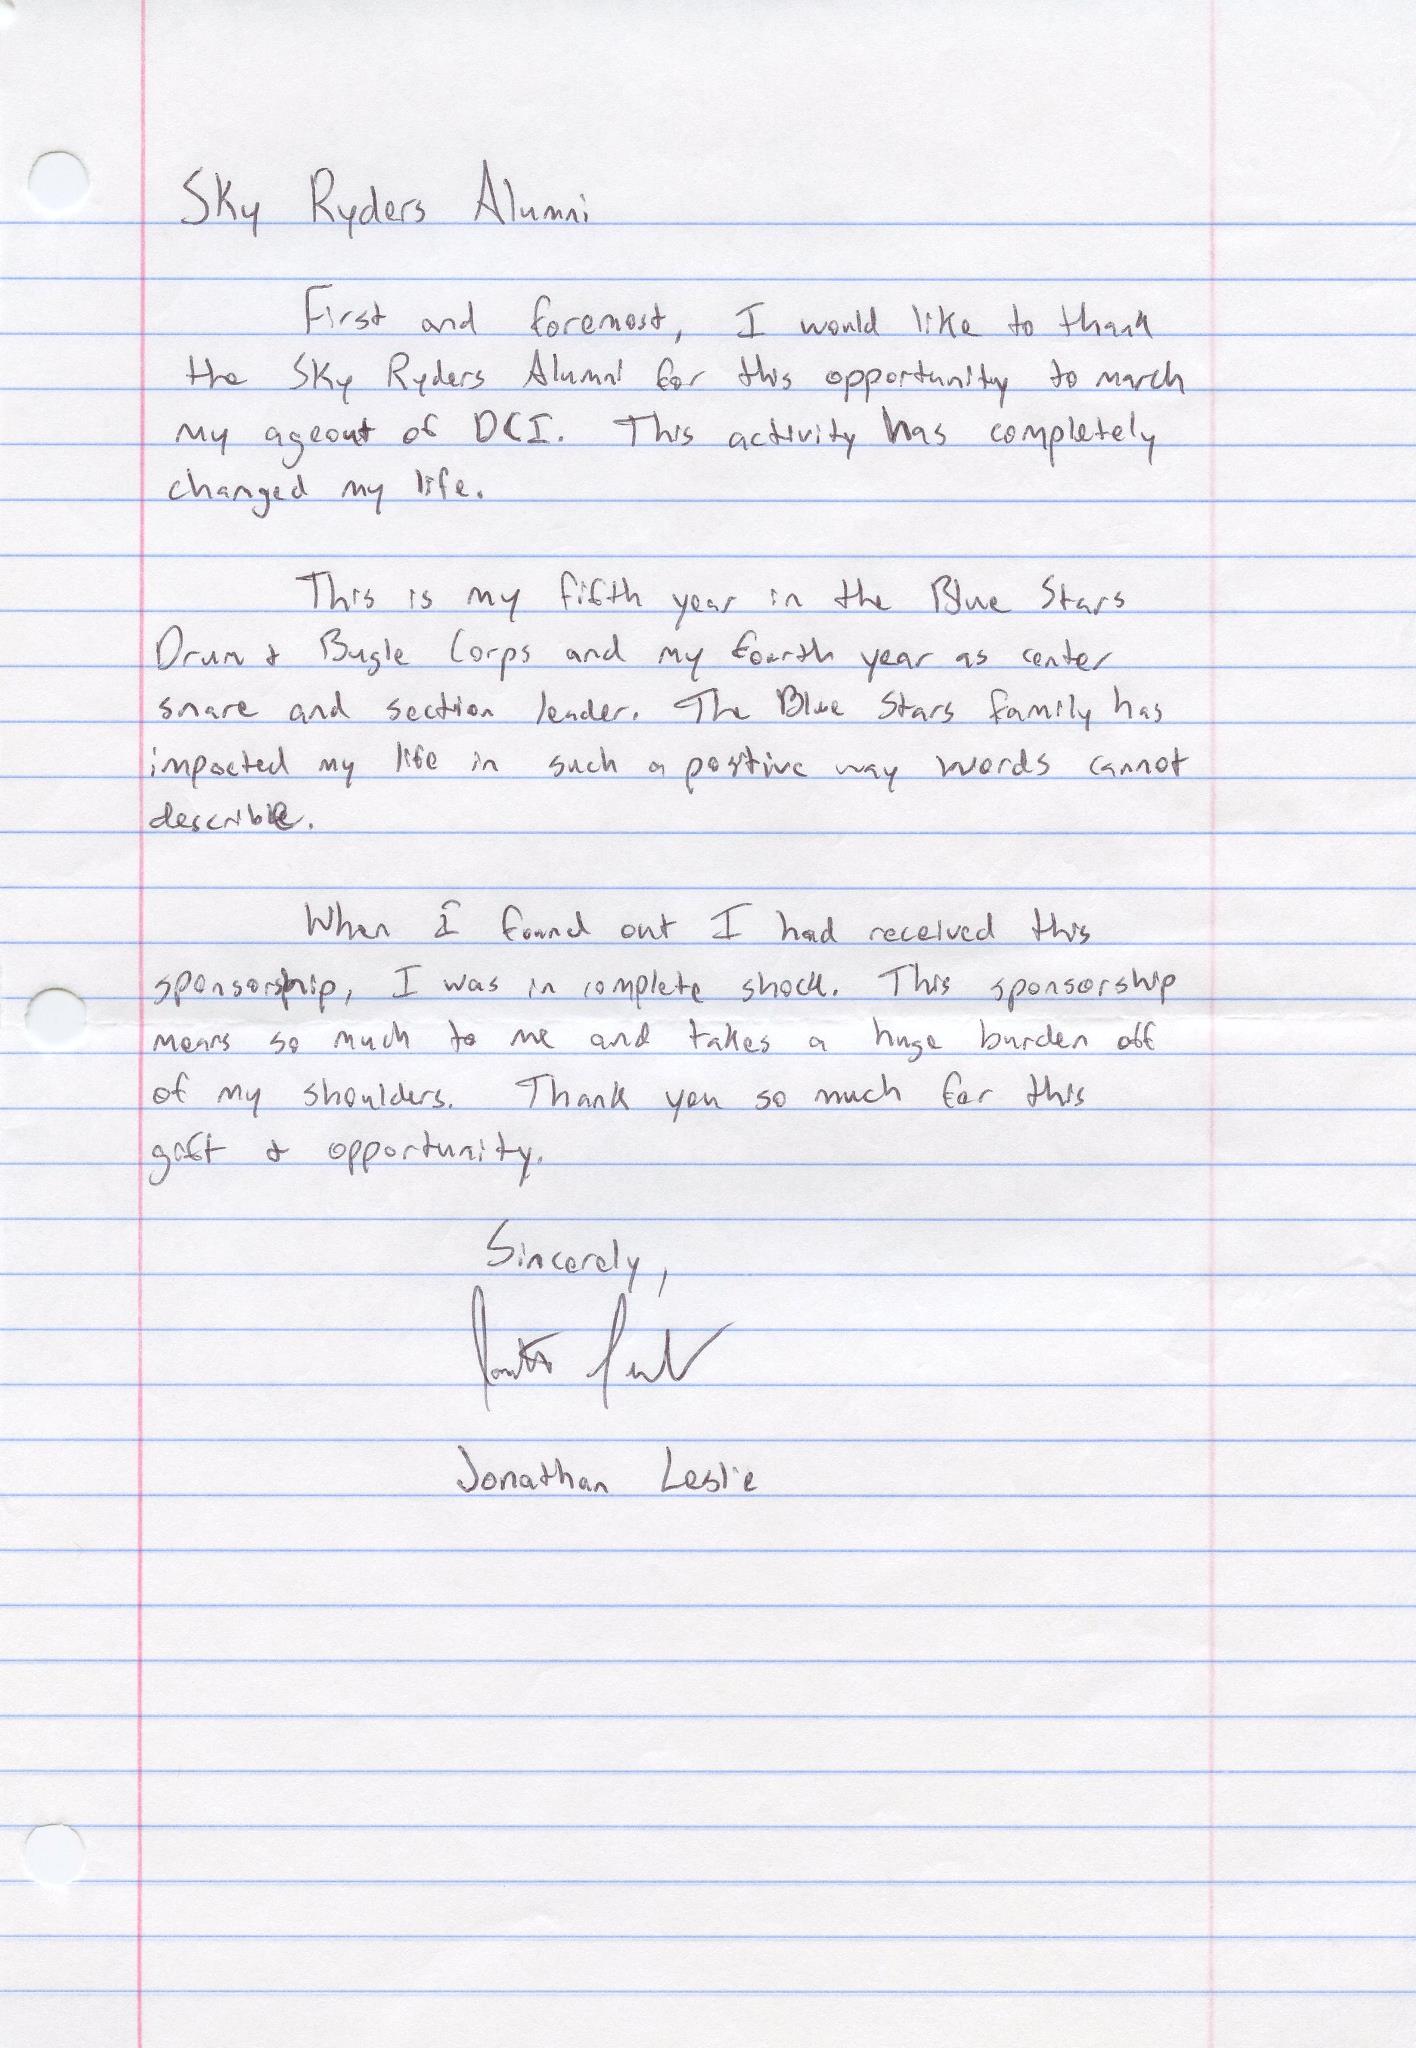 Sky Ryders Alumni
First and foremost, I would like to thank
the Sky Ryders Alumni for this opportunity to march
my ageout of DCI. This activity has completely
changed my life.
This is my fifth year in the Blue Stars
Drum & Bugle Corps and my fourth year as center
snare and section leader. The Blue Stars family has
impacted my life in such a positive way words cannot
describe.
When I found out I had received this
sponsorship, I was in complete shock. This sponsorship
means so much to me and takes a huge burden off
of my shoulders. Thank you so much for this
gift & opportunity.
Sincerely,
Jonathan Leslie